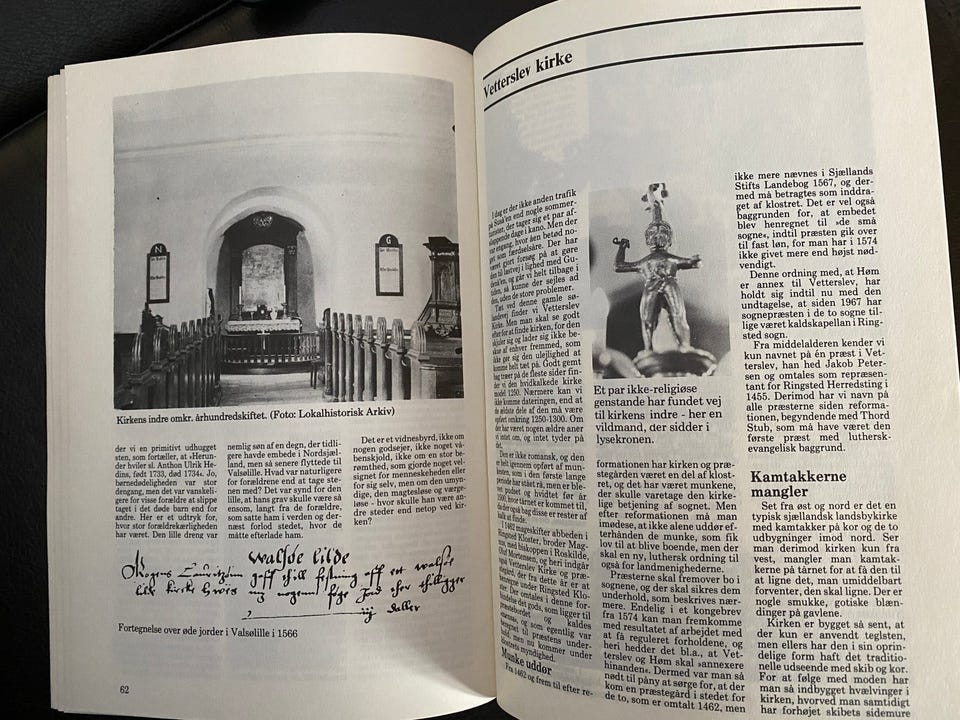 N
G
Kirkens indre omkr. århundredskiftet. (Foto: Lokalhistorisk Arkiv)
der vi en primitivt udhugget
sten, som fortæller, at »Herun-
der hviler sl. Anthon Ulrik He-
dins, født 1733, død 1734«. Jo,
børnedødeligheden var stor
dengang, men det var vanskeli-
gere for visse forældre at slippe
taget i det døde barn end for
andre. Her er et udtryk for,
hvor stor forældrekærligheden
har været. Den lille dreng var
nemlig søn af en degn, der tidli-
gere havde embede i Nordsjæl-
land, men så senere flyttede til
Valsølille. Hvad var naturligere
for forældrene end at tage ste-
nen med? Det var synd for den
lille, at hans grav skulle være så
ensom, langt fra de forældre,
som satte ham i verden og der-
næst forlod stedet, hvor de
måtte efterlade ham.
Det er et vidnesbyrd, ikke om
nogen godsejer, ikke noget vå-
benskjold, ikke om en stor be-
rømthed, som gjorde noget vel-
signet for menneskeheden eller
for sig selv, men om den umyn-
dige, den magtesløse og værge-
løse - hvor skulle han være an-
dre steder end netop ved kir-
ken?
Walsøe lilde
daller
Fortegnelse over øde jorder i Valsølille i 1566
62
Vetterslev kirke
I dag er der ikke anden trafik
på Susåen end nogle sommer-
turister, der tager sig et par af-
slappende dage i kano. Men der
var engang, hvor åen betød no-
get som færdselsåre. Der har
været gjort forsøg på at gøre
den til lastvej i lighed med Gu-
denåen, og går vi helt tilbage i
tiden, så kunne der sejles ad
åen, uden de store problemer.
Tæt ved denne gamle sø-
landevej finder vi Vetterslev
Kirke. Men man skal se godt
efter for at finde kirken, for den
skjuler sig og lader sig ikke be-
skue af enhver fremmed, som
ikke gør sig den ulejlighed at
komme helt tæt på. Godt gemt
bag træer på de fleste sider fin-
der vi den hvidkalkede kirke
model 1250. Nærmere kan vi
ikke komme dateringen, end at
de ældste dele af den må være
opført omkring 1250-1300. Om
der har været nogen ældre aner
vi intet om, og intet tyder på
det.
Den er ikke romansk, og den
er helt igennem opført af mun-
kesten, som i den første lange
periode har stået rå, men er ble-
vet pudset og hvidtet før år
1500, hvor tårnet er kommet til,
da der også bag disse er rester af
kalk at finde.
I 1462 mageskifter abbeden i
Ringsted Kloster, broder Mag-
nus, med biskoppen i Roskilde,
Oluf Mortensen, og heri indgår
også Vetterslev Kirke og præs-
tegård, der fra dette år er at
betragte under Ringsted Klo-
ster. Der omtales i denne for-
bindelse det gods, som ligger til
præstebordet og kaldes
»mensa«, og som egentlig var
beregnet til præstens under-
hold, men nu kommer under
klostrets myndighed.
Munke uddor
Fra 1462 og frem til efter re-
Et par ikke-religiøse
genstande har fundet vej
til kirkens indre - her en
vildmand, der sidder i
lysekronen.
formationen har kirken og præ-
stegården været en del af klost-
ret, og det har været munkene,
der skulle varetage den kirke-
lige betjening af sognet. Men
efter reformationen må man
imødese, at ikke alene uddør ef-
terhånden de munke, som fik
lov til at blive boende, men der
skal en ny, luthersk ordning til
også for landmenighederne.
Præsterne skal fremover bo i
sognene, og der skal sikres dem
underhold, som beskrives nær-
mere. Endelig i et kongebrev
fra 1574 kan man fremkomme
med resultatet af arbejdet med
at få reguleret forholdene, og
heri hedder det bl.a., at Vet-
terslev og Høm skal »annexere
hinanden«. Dermed var man så
nødt til påny at sørge for, at der
kom en præstegård i stedet for
de to, som er omtalt 1462, men
ikke mere nævnes i Sjællands
Stifts Landebog 1567, og der-
med må betragtes som inddra-
get af klostret. Det er vel også
baggrunden for, at embedet
blev henregnet til »de små
sogne«, indtil præsten gik over
til fast løn, for man har i 1574
ikke givet mere end højst nød-
vendigt.
Denne ordning med, at Høm
er annex til Vetterslev, har
holdt sig indtil nu med den
undtagelse, at siden 1967 har
sognepræsten i de to sogne til-
lige været kaldskapellan i Ring-
sted sogn.
Fra middelalderen kender vi
kun navnet på én præst i Vet-
terslev, han hed Jakob Peter-
sen og omtales som repræsen-
tant for Ringsted Herredsting i
1455. Derimod har vi navn på
alle præsterne siden reforma-
tionen, begyndende med Thord
Stub, som må have været den
første præst med luthersk-
evangelisk baggrund.
Kamtakkerne
mangler
Set fra øst og nord er det en
typisk sjællandsk landsbykirke
med kamtakker på kor og de to
udbygninger imod nord. Ser
man derimod kirken kun fra
vest, mangler man kamtak-
kerne på tårnet for at få den til
at ligne det, man umiddelbart
forventer, den skal ligne. Der er
nogle smukke, gotiske blæn-
dinger på gavlene.
Kirken er bygget så sent, at
der kun er anvendt teglsten,
men ellers har den i sin oprin-
delige form haft det traditio-
nelle udseende med skib og kor.
For at følge med moden har
man så indbygget hvælvinger i
kirken, hvorved man samtidigt
har forhøjet skibets sidemure